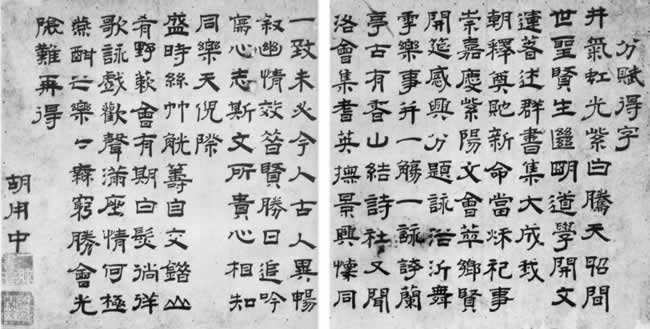 分賦得字
井氣虹光紫白騰天昭間
世聖賢生明道學開文
運著述群書集大成我
朝釋奠貤新命當秋祀事
崇嘉慶紫陽文會萃鄉賢
開筵感興分題詠浴沂舞
雩樂事并一觴一詠誇蘭
亭古有香山結詩社又聞
洛會集耆英撫景興懷同
一致未必今人古人異暢
敘幽情效昔賢勝日追吟
寫心志斯文所貴心相知
同樂天倪際
盛時絲竹觥籌自交錯山
肴野蔌會有期白髮徜徉
歌詠戲歡聲滿座情何極
燕酣之樂〻無窮勝會光
陰難再得
胡用中